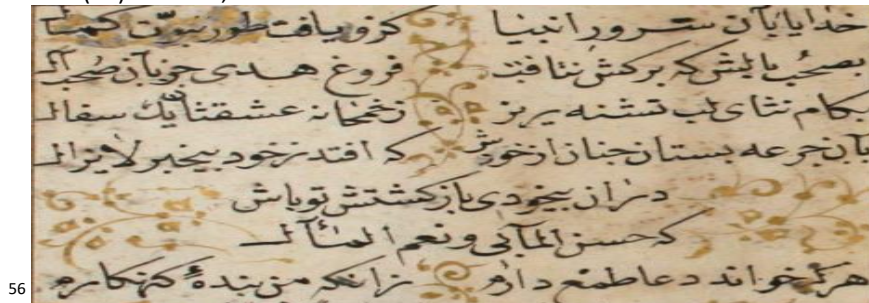 خدایا بآن سرور انبیا کزو یافت طور نبوّت کمال
بصحب که برکش نتافت فروغ هدی جز بآن صحب آل
بکام نثای لب تشنه بریز زخمخانه سفال
بآن جرعه بستان چنان از خودش که افتد ز خود بیخبر لایزال
دران بیخودی بازکشتش توباش
که حسن المآبی و نعم
هرکه خواند دعا طمع دارم زانکه من بندهٔ کنهکارم
56